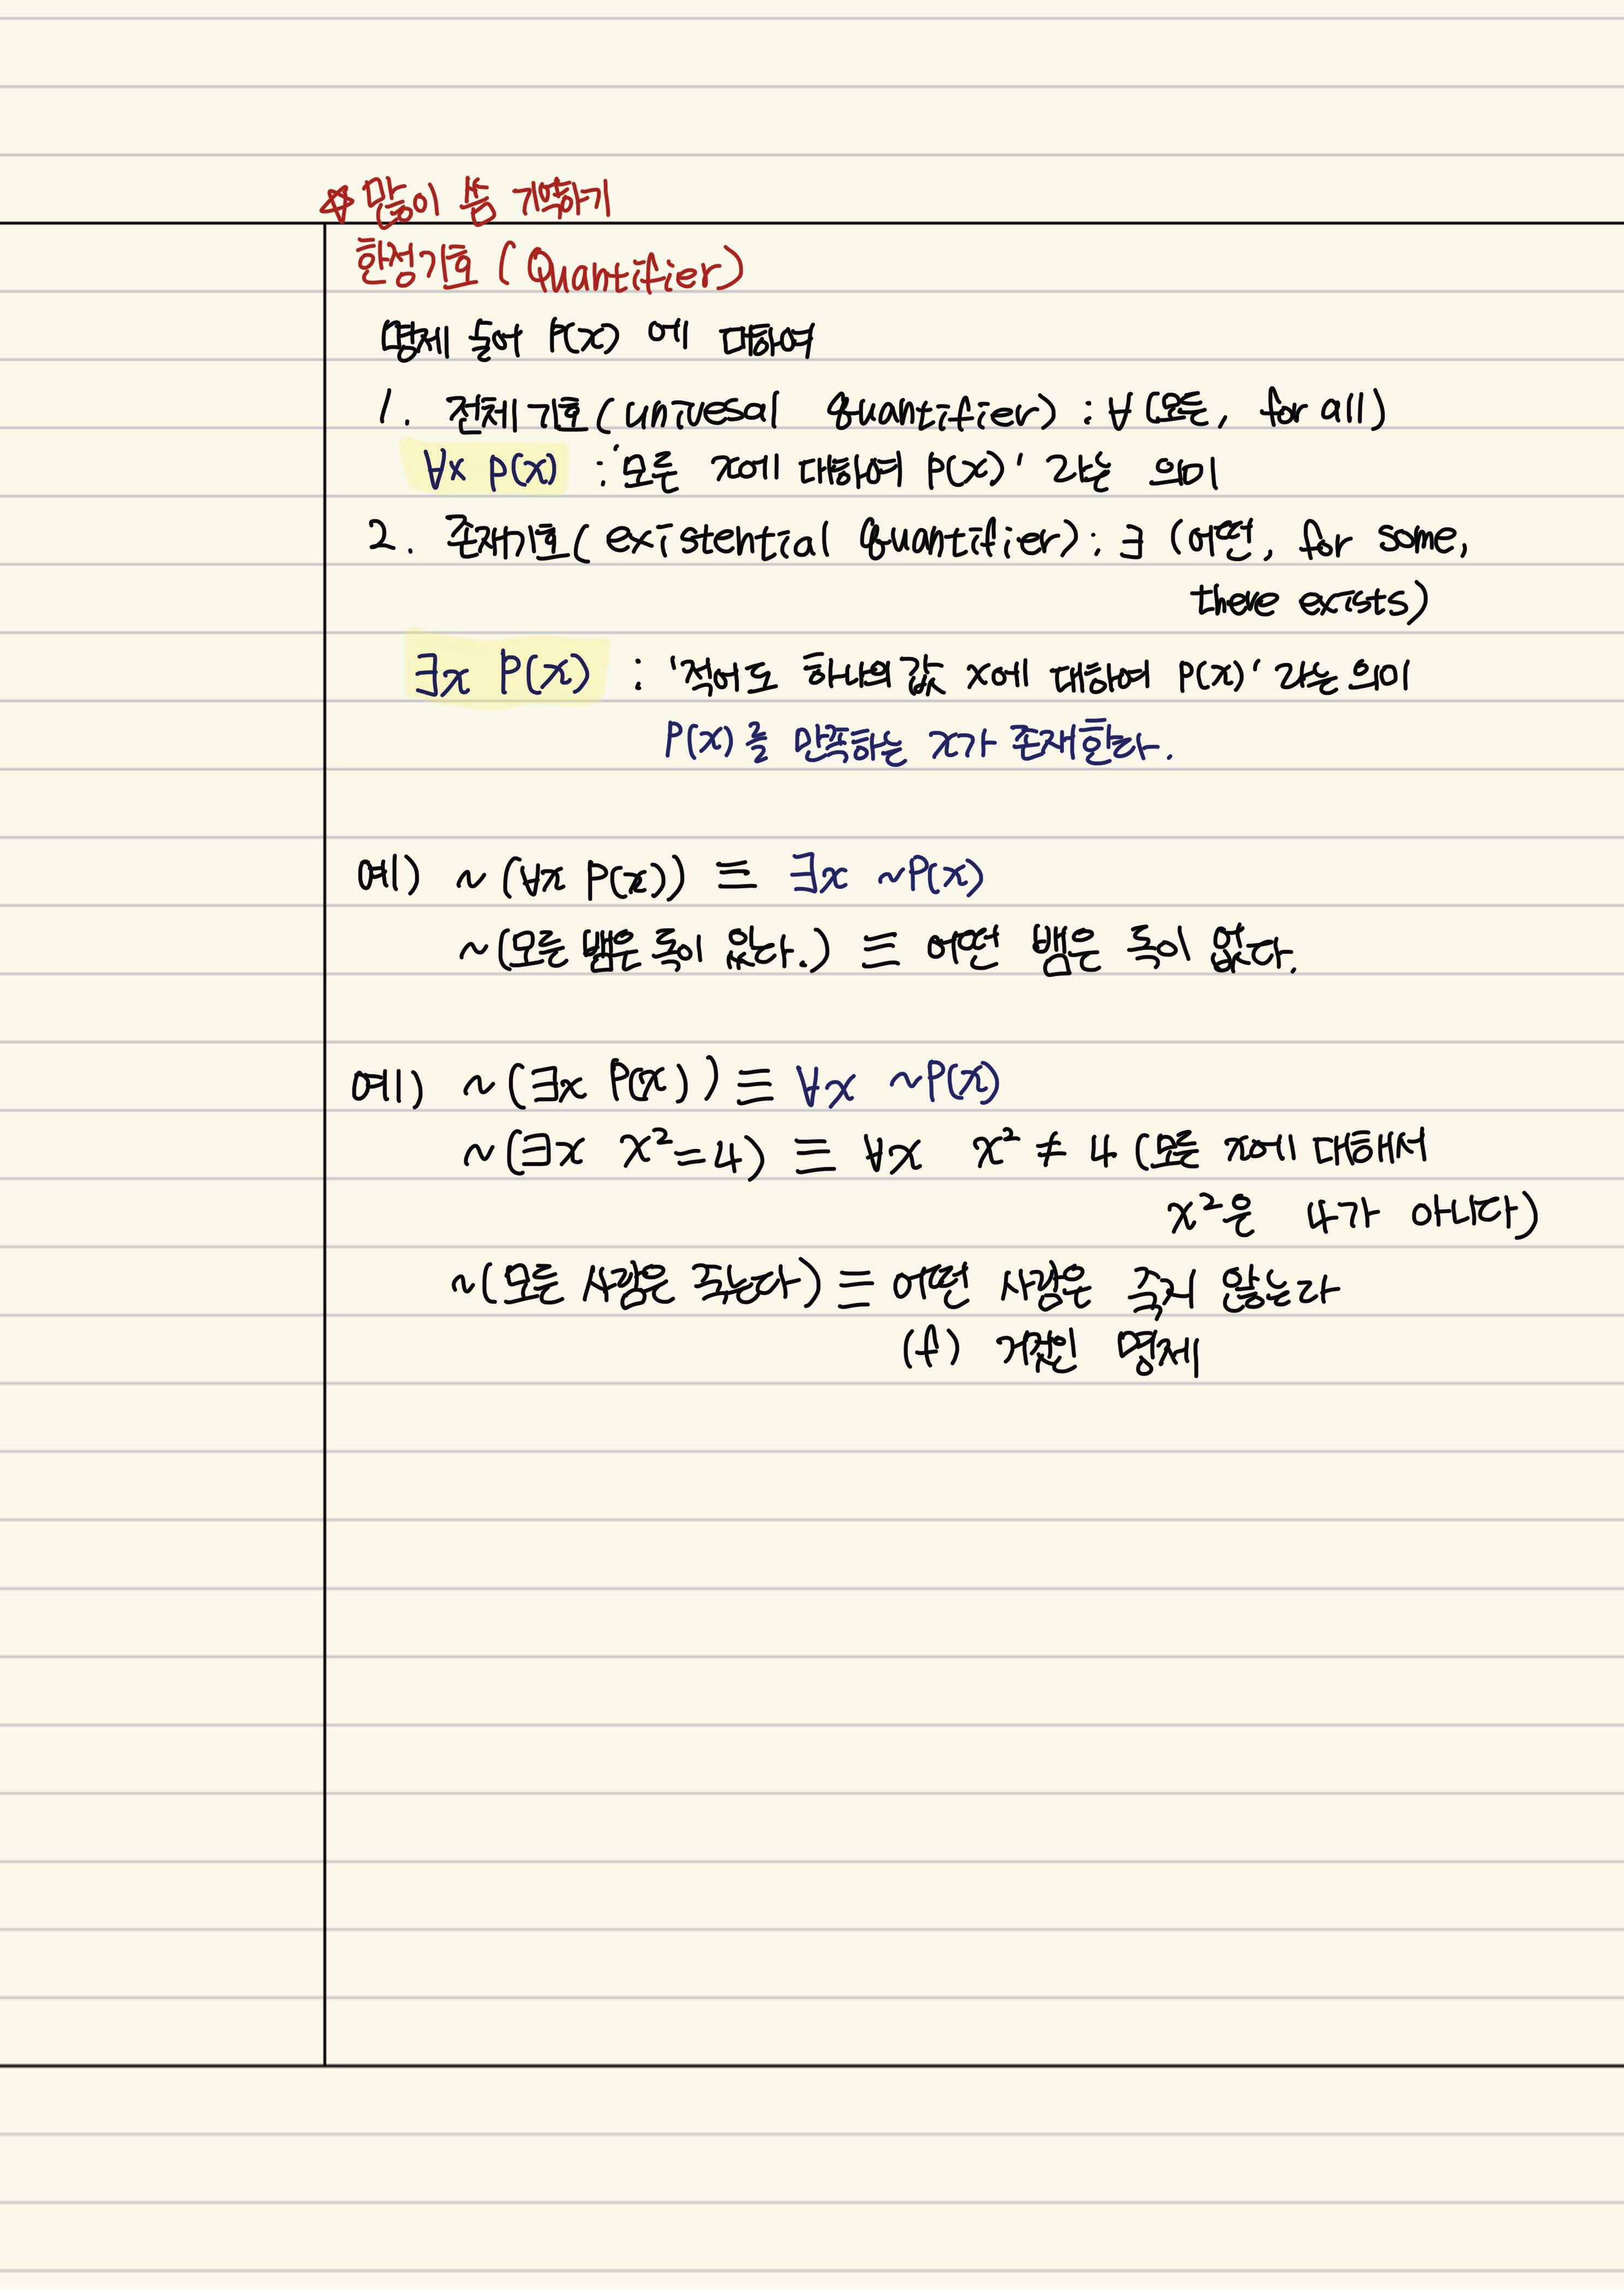 ☆ 많이 씀 기억하기
한정기호 (Quantifier)
명제 술어 P(x) 에 대하여
1. 전체기호(univesal quantifier) : ∀ (모든, for all)
∀x p(x) : '모든 x에 대하여 P(x)' 라는 의미
2. 존재기호(existential quantifier) : ∃ (어떤, for some,
there exists)
∃x P(x) : '적어도 하나의 값 x에 대하여 P(x)' 라는 의미
P(x)를 만족하는 x가 존재한다.
예) ~(∀x P(x)) ≡ ∃x ~P(x)
~(모든 뱀은 독이 있다.) ≡ 어떤 뱀은 독이 없다.
예) ~(∃x P(x)) ≡ ∀x ~P(x)
~(∃x x²=4) ≡ ∀x x² ≠ 4 (모든 x에 대해서
x²은 4가 아니다)
~(모든 사람은 죽는다) ≡ 어떤 사람은 죽지 않는다
(f) 거짓인 명제